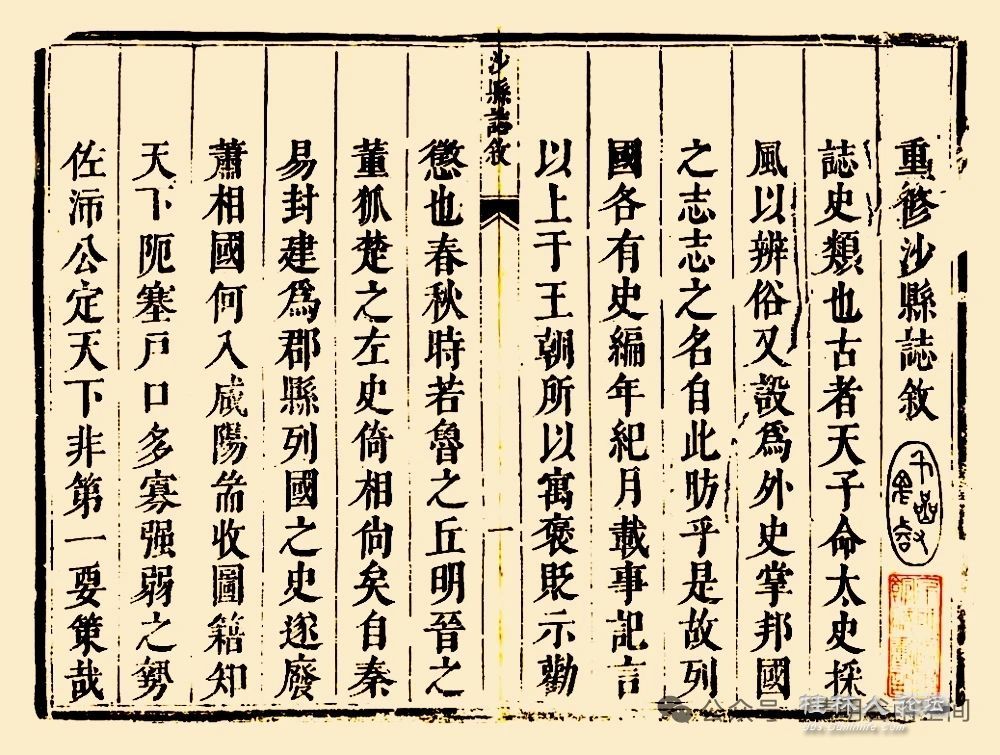 重修沙縣誌敘
誌史類也古者天子命太史採
風以辨俗又設爲外史掌邦國
之志志之名自此昉乎是故列
國各有史編年紀月載事記言
以上于王朝所以寓褒貶示勸
沙縣誌敘
一
懲也春秋時若魯之丘明晉之
董狐楚之左史倚相尚矣自秦
易封建爲郡縣列國之史遂廢
蕭相國何入咸陽耑收圖籍知
天下阨塞戸口多寡强弱之勢
佐沛公定天下非第一要策哉
公众号
桂林人论坛